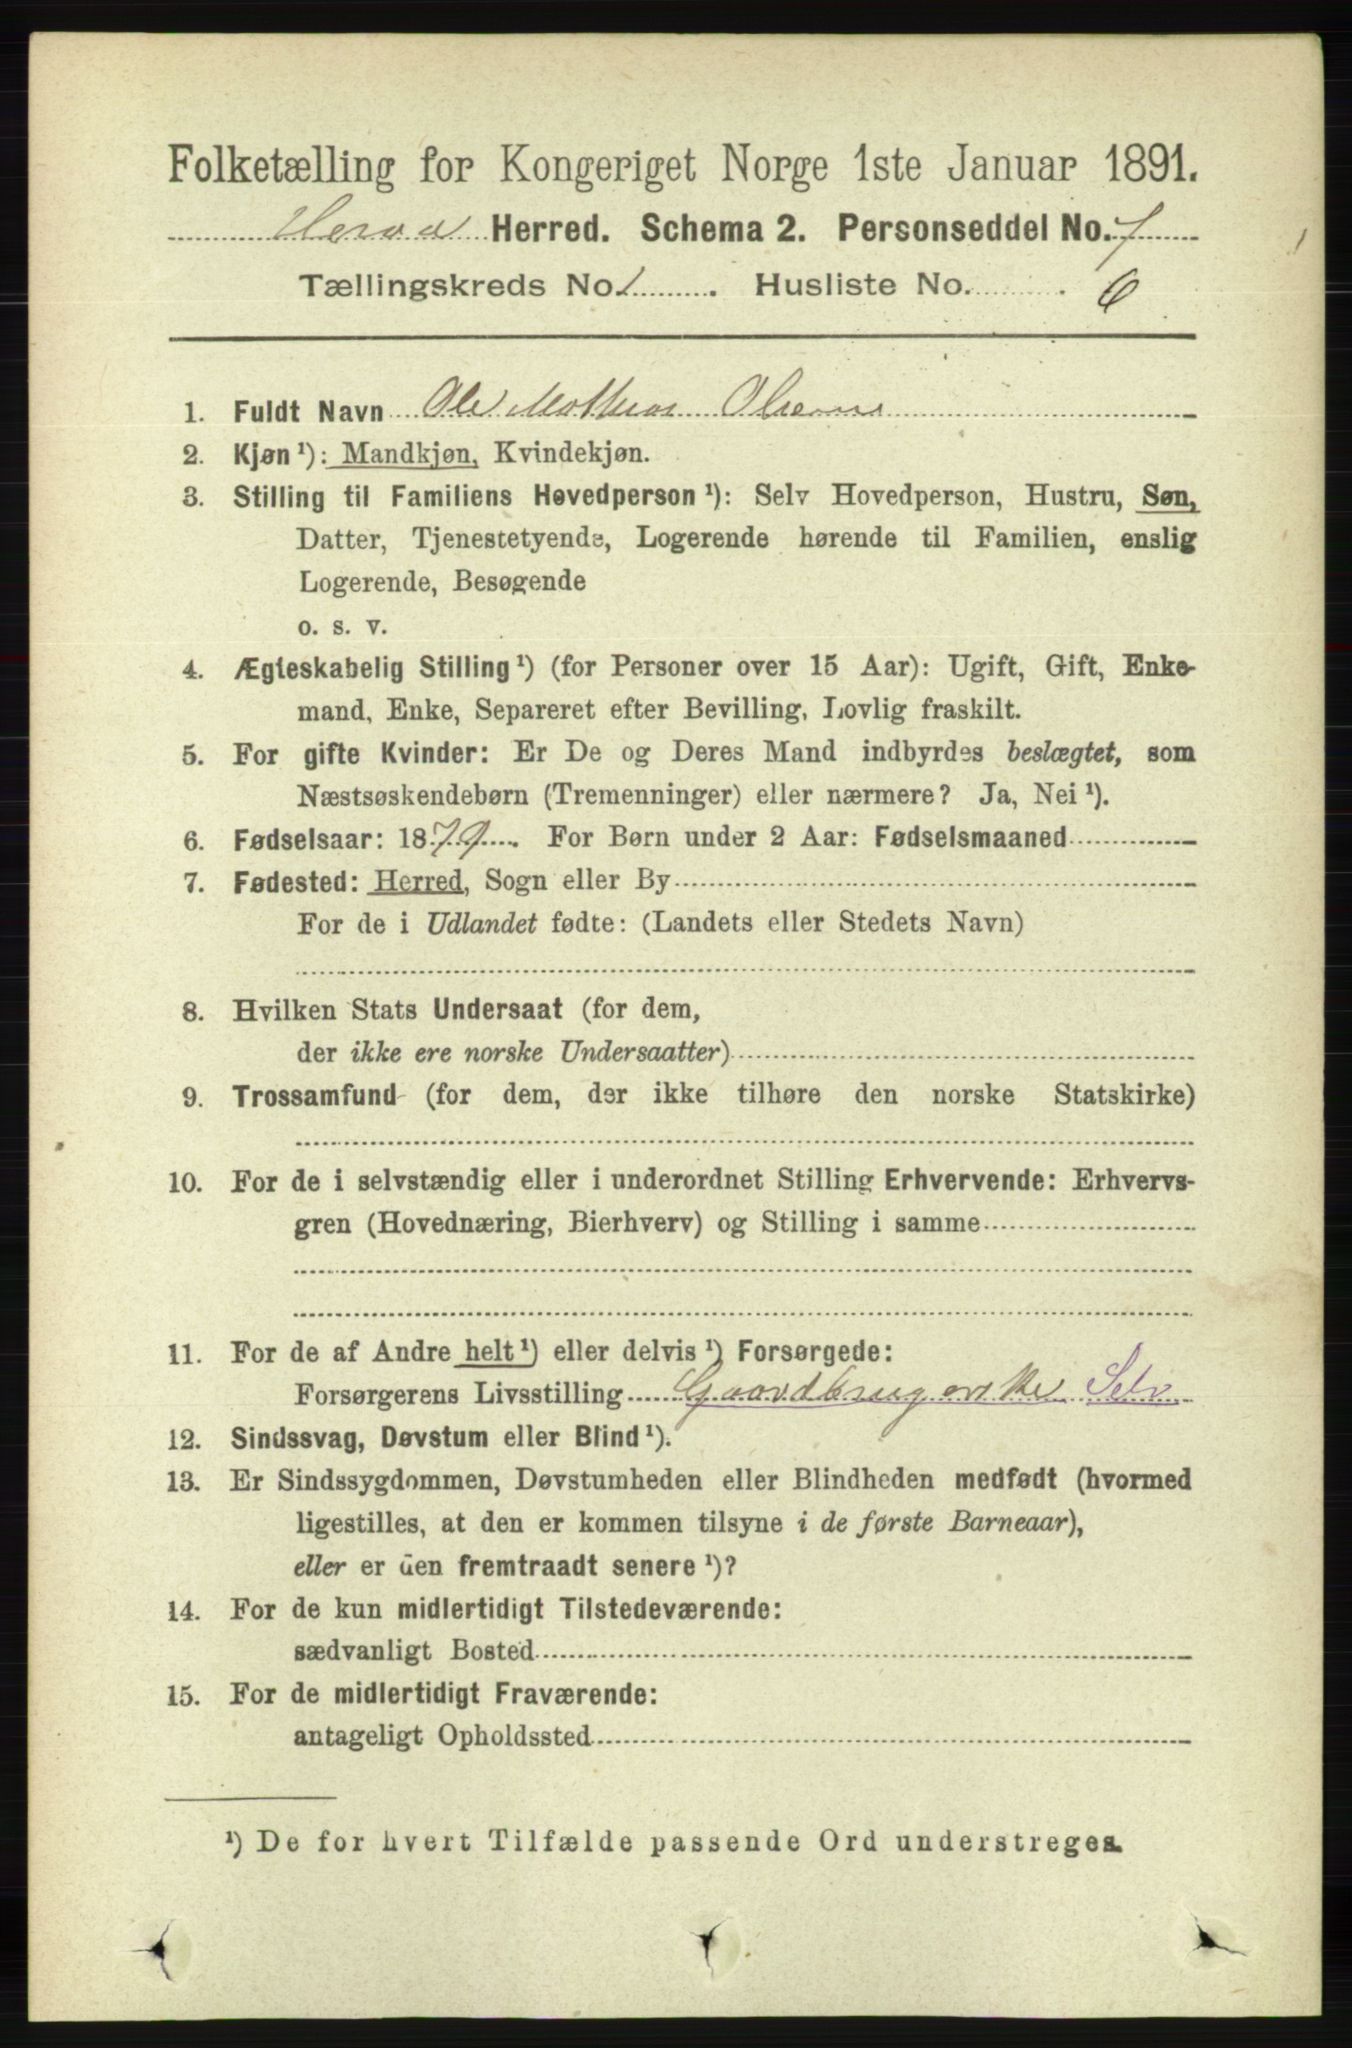 Folketælling for Kongeriget Norge 1ste Januar 1891.
Herred. Schema 2. Personseddel No. 7
Tællingskreds No. 1. Husliste No. 6
1. Fuldt Navn Ole Mathias Olsen
2. Kjøn ¹): Mandkjøn, Kvindekjøn.
3. Stilling til Familiens Hovedperson ¹): Selv Hovedperson, Hustru, Søn,
Datter, Tjenestetyende, Logerende hørende til Familien, enslig
Logerende, Besøgende
o. s. v.
4. Ægteskabelig Stilling ¹) (for Personer over 15 Aar): Ugift, Gift, Enke-
mand, Enke, Separeret efter Bevilling, Lovlig fraskilt.
5. For gifte Kvinder: Er De og Deres Mand indbyrdes beslægtet, som
Næstsøskendebørn (Tremenninger) eller nærmere? Ja, Nei ¹).
6. Fødselsaar: 1879. For Børn under 2 Aar: Fødselsmaaned
7. Fødested: Herred, Sogn eller By
For de i Udlandet fødte: (Landets eller Stedets Navn)
8. Hvilken Stats Undersaat (for dem,
der ikke ere norske Undersaatter)
9. Trossamfund (for dem, der ikke tilhøre den norske Statskirke)
10. For de i selvstændig eller i underordnet Stilling Erhvervende: Erhvervs-
gren (Hovednæring, Bierhverv) og Stilling i samme
11. For de af Andre helt ¹) eller delvis ¹) Forsørgede:
Forsørgerens Livsstilling Gaardbrugerske Selv
12. Sindssvag, Døvstum eller Blind ¹).
13. Er Sindssygdommen, Døvstumheden eller Blindheden medfødt (hvormed
ligestilles, at den er kommen tilsyne i de første Barneaar),
eller er den fremtraadt senere ¹)?
14. For de kun midlertidigt Tilstedeværende:
sædvanligt Bosted
15. For de midlertidigt Fraværende:
antageligt Opholdssted
¹) De for hvert Tilfælde passende Ord understreges.